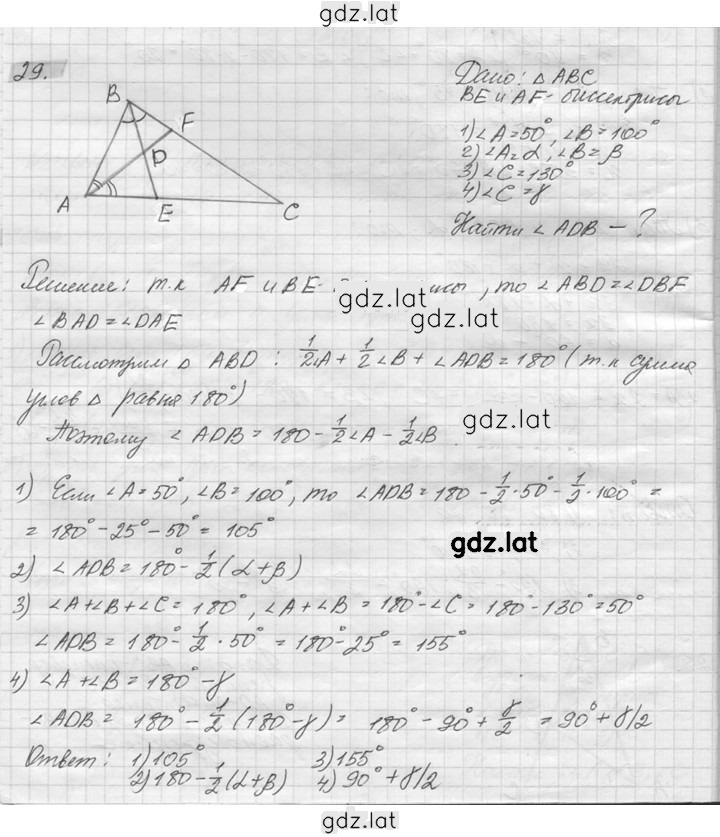 gdz.lat
29.
Дано: △ ABC
BE и AF- биссектрисы
1) ∠A=50°, ∠B=100°
2) ∠A=α, ∠B=β
3) ∠C=130°
4) ∠C=γ
Найти ∠ADB - ?
B
F
D
A
E
C
Решение: т.к AF и BE- , то ∠ABD=∠DBF
gdz.lat
∠BAD=∠DAE
Рассмотрим △ ABD : 1/2∠A + 1/2∠B + ∠ADB = 180° (т.к сумма
углов △ равна 180°)
gdz.lat
Поэтому ∠ADB = 180 - 1/2∠A - 1/2∠B
1) Если ∠A=50°, ∠B=100°, то ∠ADB = 180 - 1/2·50° - 1/2·100° =
= 180° - 25° - 50° = 105°
gdz.lat
2) ∠ADB = 180° - 1/2(α+β)
3) ∠A+∠B+∠C = 180°, ∠A+∠B = 180°-∠C = 180°-130° = 50°
∠ADB = 180° - 1/2 · 50° = 180° - 25° = 155°
4) ∠A+∠B = 180° - γ
∠ADB = 180° - 1/2 (180° - γ) = 180° - 90° + γ/2 = 90° + γ/2
Ответ: 1) 105° 3) 155°
2) 180 - 1/2(α+β) 4) 90° + γ/2
gdz.lat